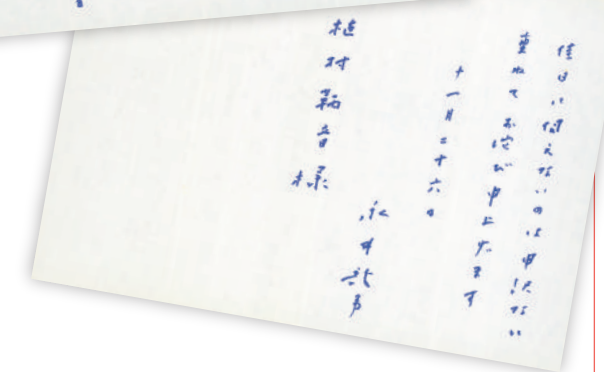 佳日に伺えないのは申訳ない
重ねてお詫び申上げます
十一月二十六日
永井龍男
植村鞆音様